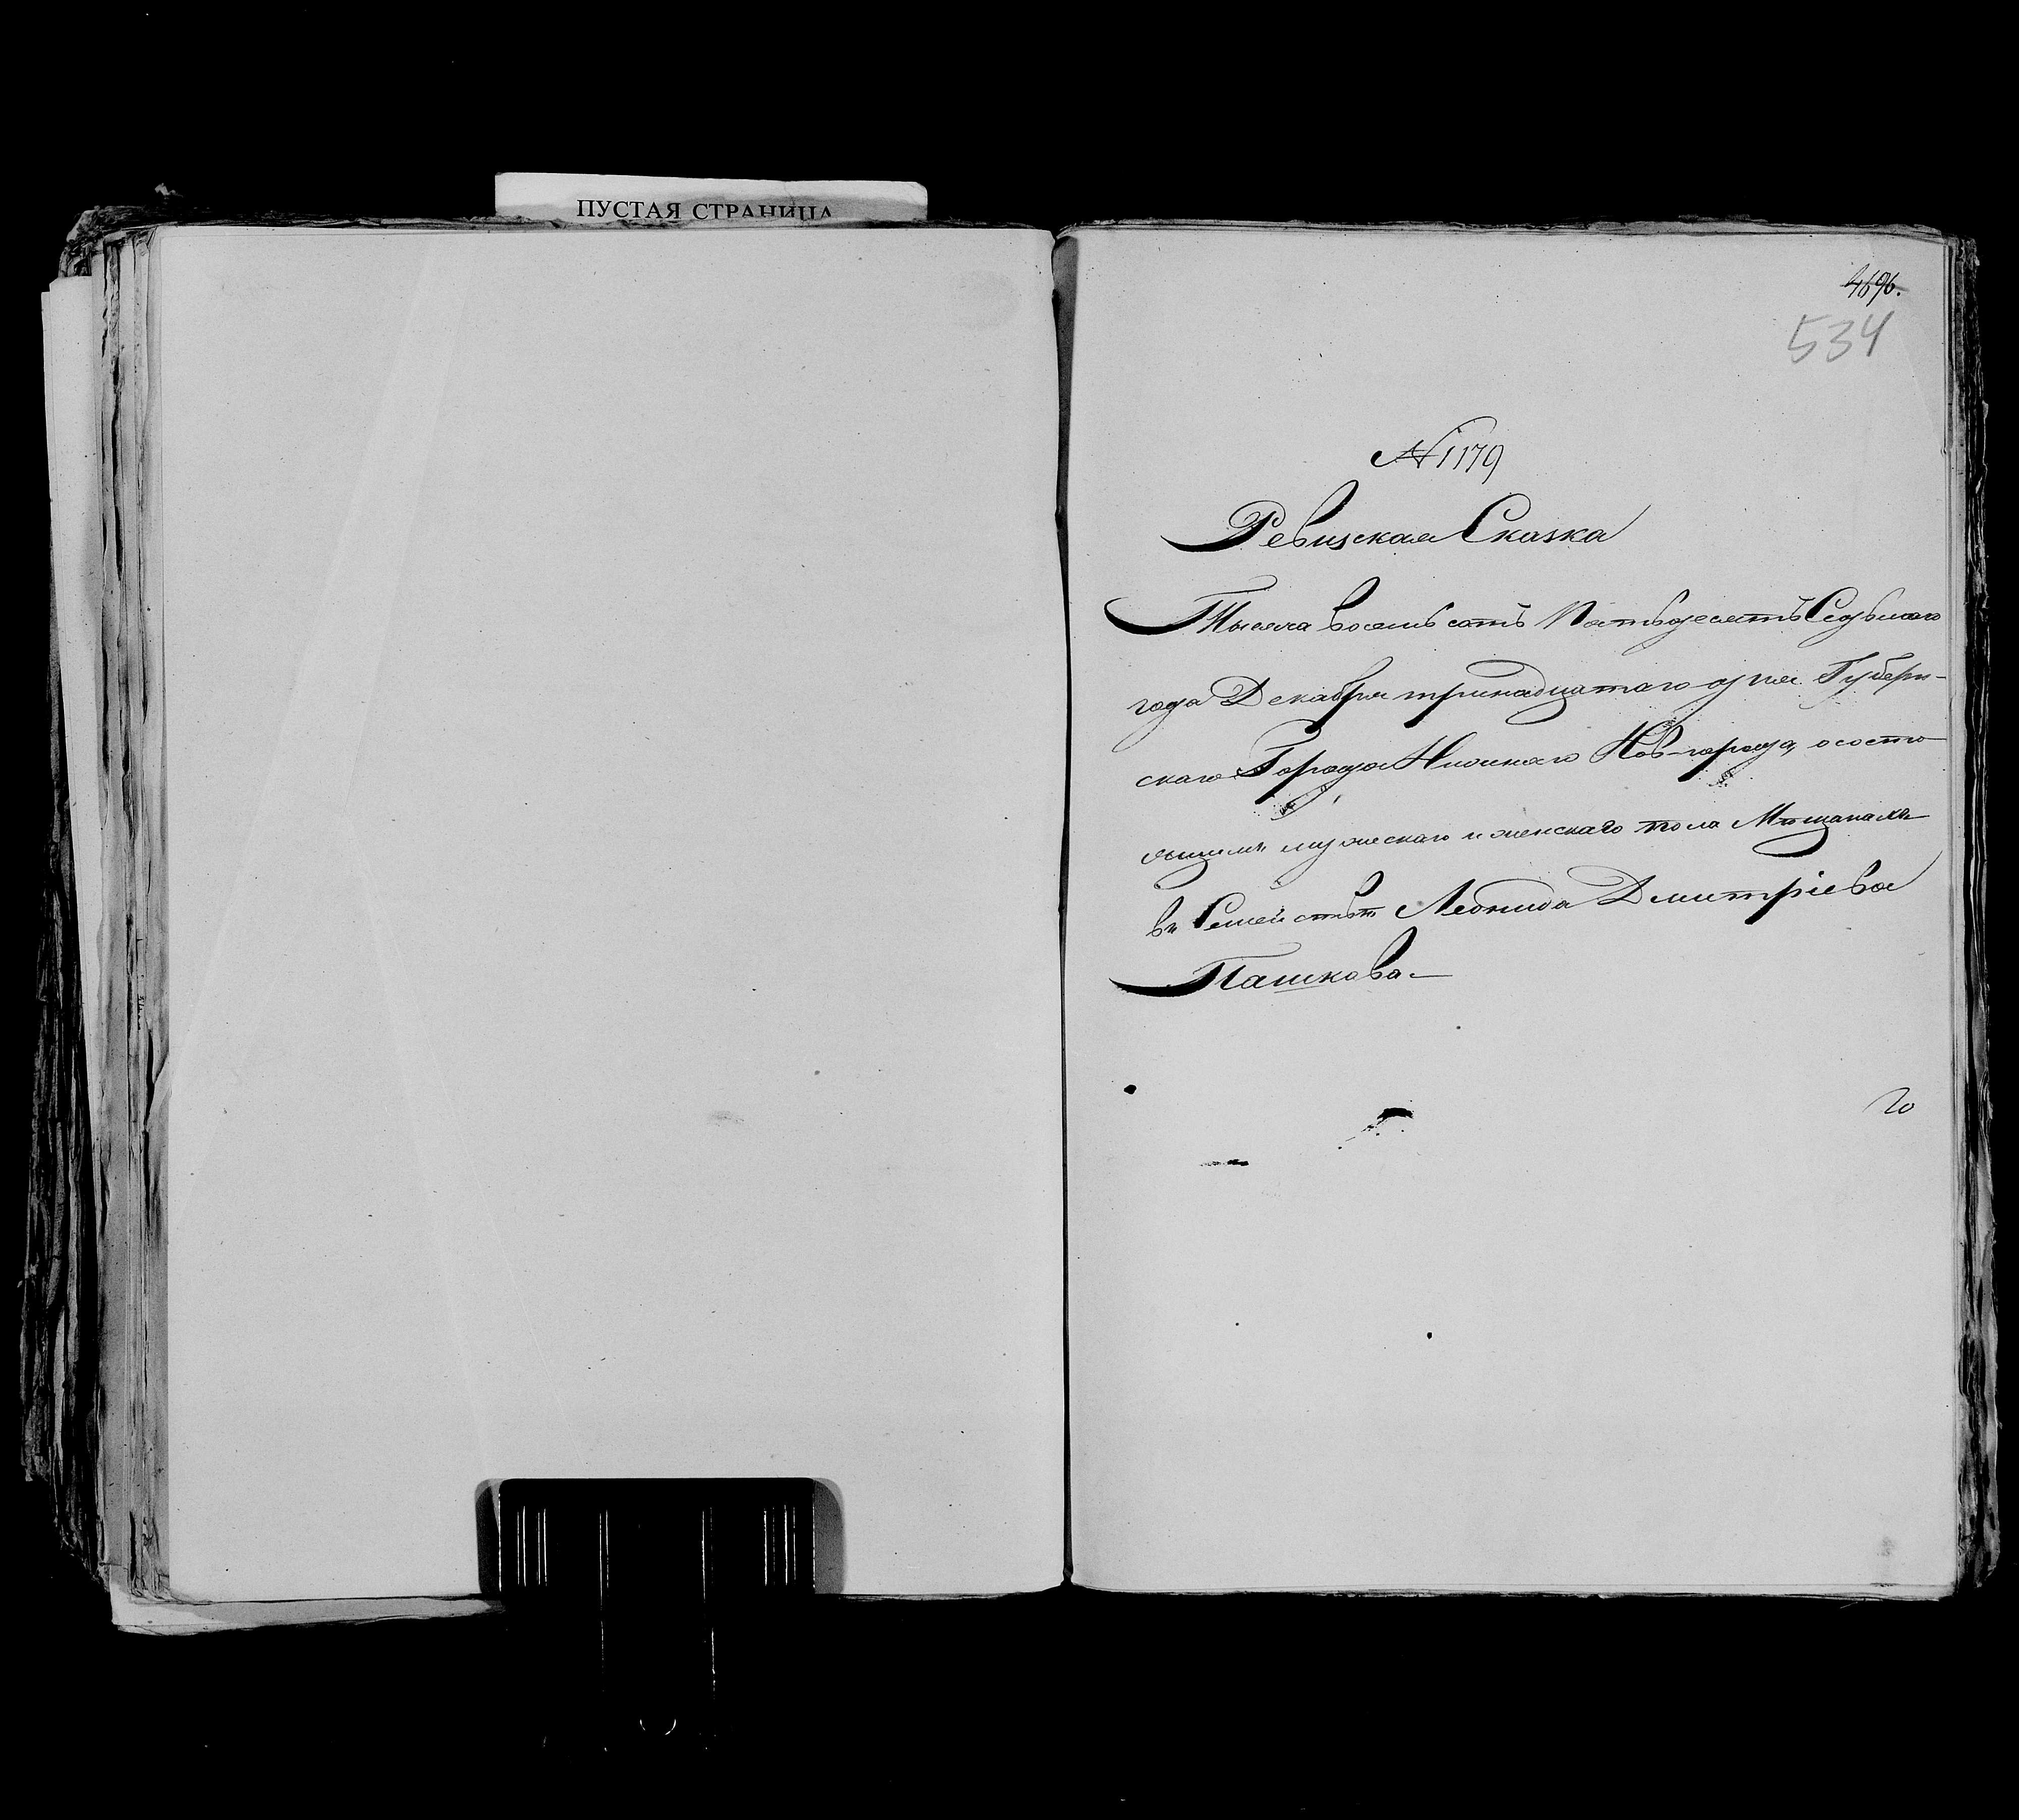 ПУСТАЯ СТРАНИЦА
4696.
534
№ 1179
Ревизская Сказка
Тысяча восемь сотъ Пятьдесятъ Седьмаго
года Декабря тринадцатаго дня Губерн-
скаго Города Нижняго Нов-города, о состо-
ящихъ мужескаго и женскаго пола Мѣщанахъ
въ Семействѣ Леонида Дмитріева
Пашкова.